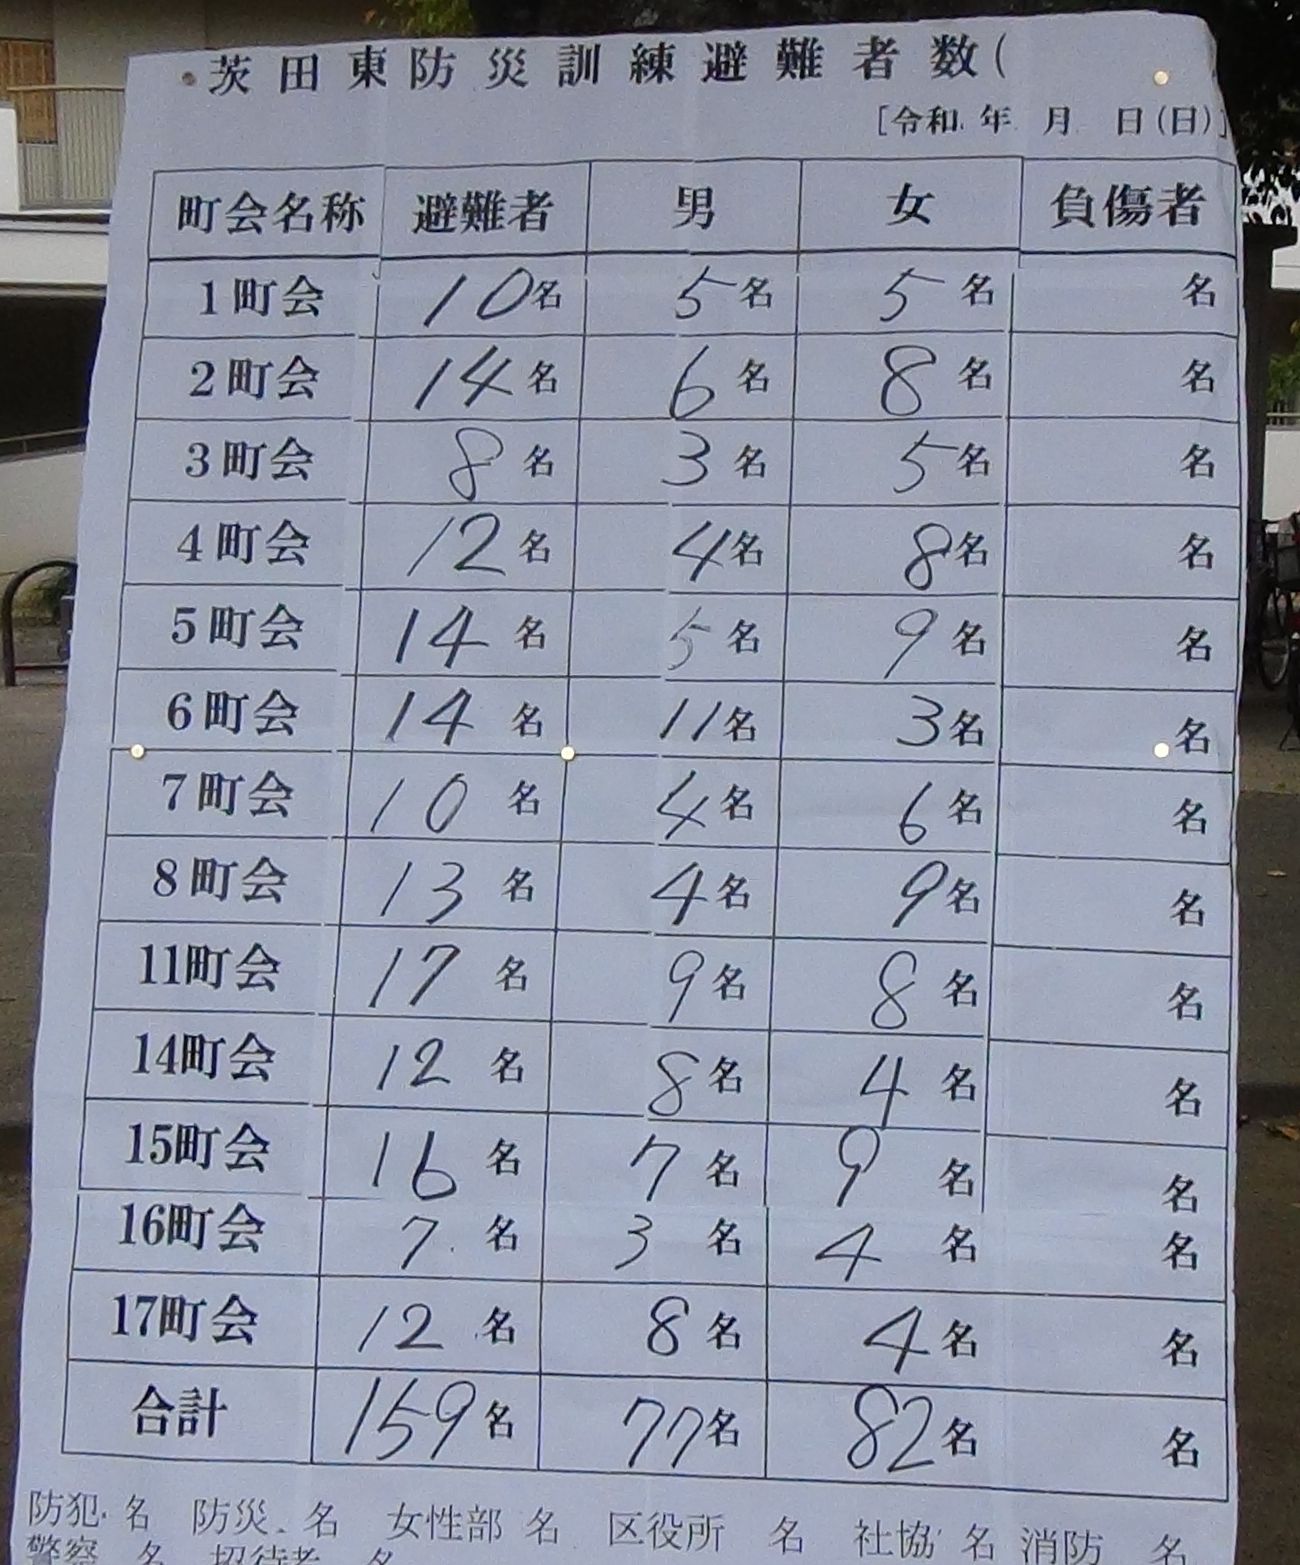 茨田東防災訓練避難者数(
[令和 年 月 日(日)]
町会名称 避難者 男 女 負傷者
1町会 10名 5名 5名 名
2町会 14名 6名 8名 名
3町会 8名 3名 5名 名
4町会 12名 4名 8名 名
5町会 14名 5名 9名 名
6町会 14名 11名 3名 名
7町会 10名 4名 6名 名
8町会 13名 4名 9名 名
11町会 17名 9名 8名 名
14町会 12名 8名 4名 名
15町会 16名 7名 9名 名
16町会 7名 3名 4名 名
17町会 12名 8名 4名 名
合計 159名 77名 82名 名
防犯 名 防災 名 女性部 名 区役所 名 社協 名 消防 名
警察 名 招待者 名